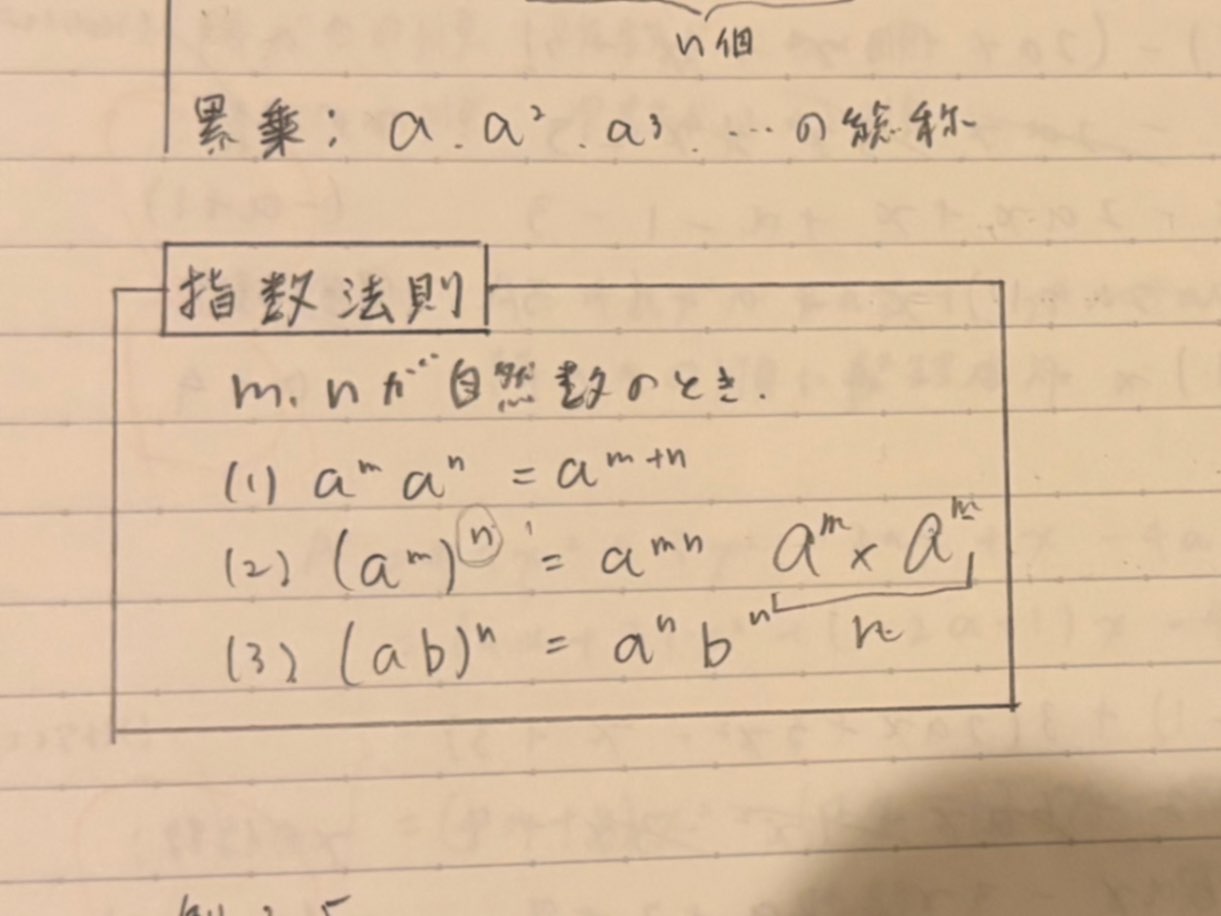 n個
累乗: a. a². a³. …の総称
指数法則
m, nが自然数のとき.
(1) aᵐ aⁿ = aᵐ⁺ⁿ
(2) (aᵐ)ⁿ = aᵐⁿ aᵐ × aᵐ
n
(3) (ab)ⁿ = aⁿ bⁿ